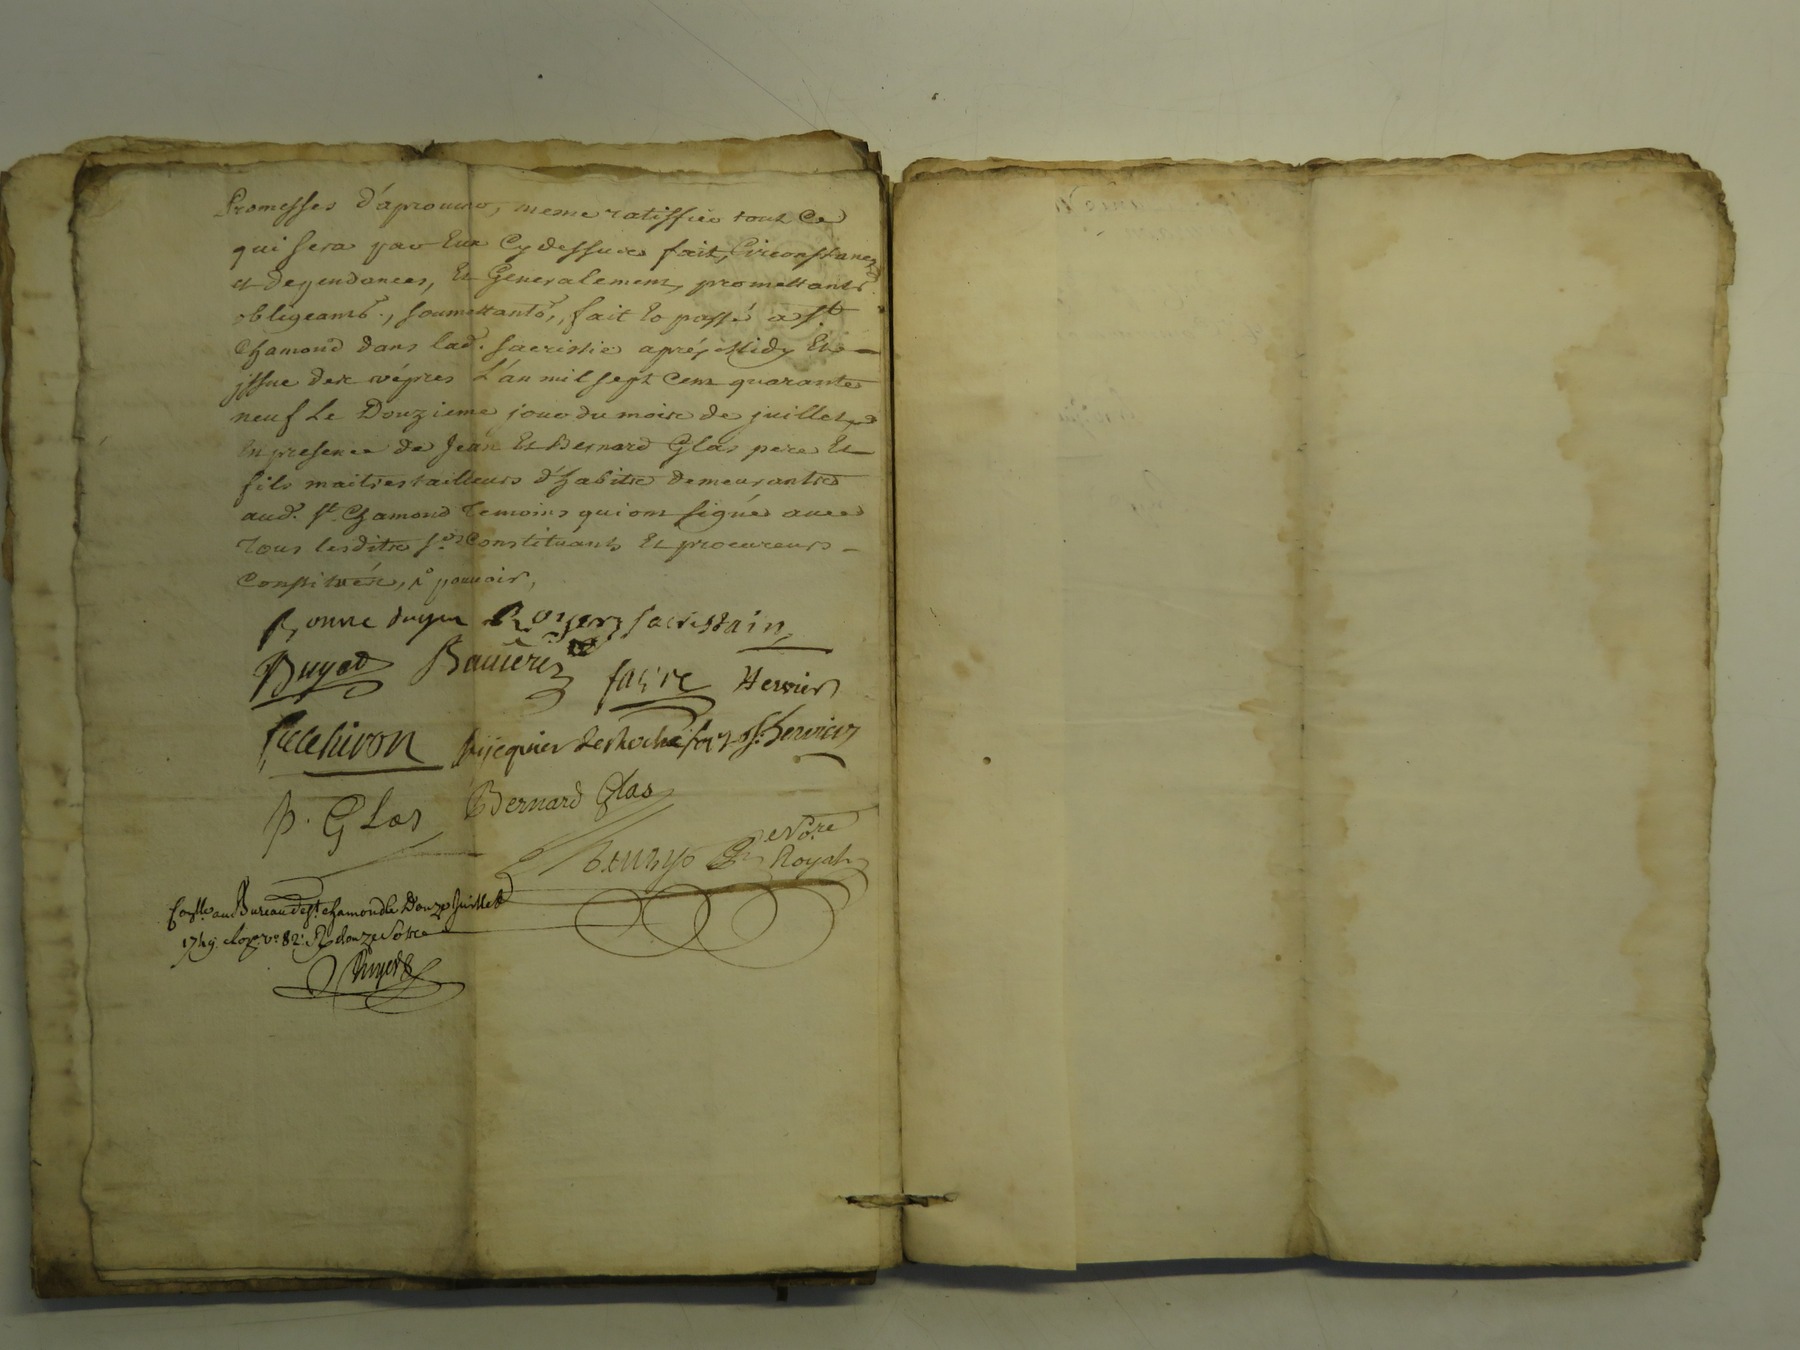 Promesses d'aprouver, meme ratiffier tout Ce
qui sera par Eux Cydessus fait, Circonstances
et dependances, Et Generalement, promettants
obligeants., soumettants, fait Et passé a St
Chamond dans lad. sacristie aprés Midy Et
jssue des vépres L'an mil sept Cent quarante
neuf Le Douzieme jour du mois de juillet
En presence de Jean Et Bernard Glas pere Et
fils maitres tailleurs d'habits demeurants
aud. St. Chamond temoins qui ont signés avec
Tous lesdits Srs Constituants Et procureurs
Constitués, pouvoir,
Royer sacristain
Buyet favre Hervier
J. Hervier
P. Glas Bernard Glas
Nore
Royal
au Bureau de St. chamond le Douze Juillet
1749. Vo 82. R. douze sols